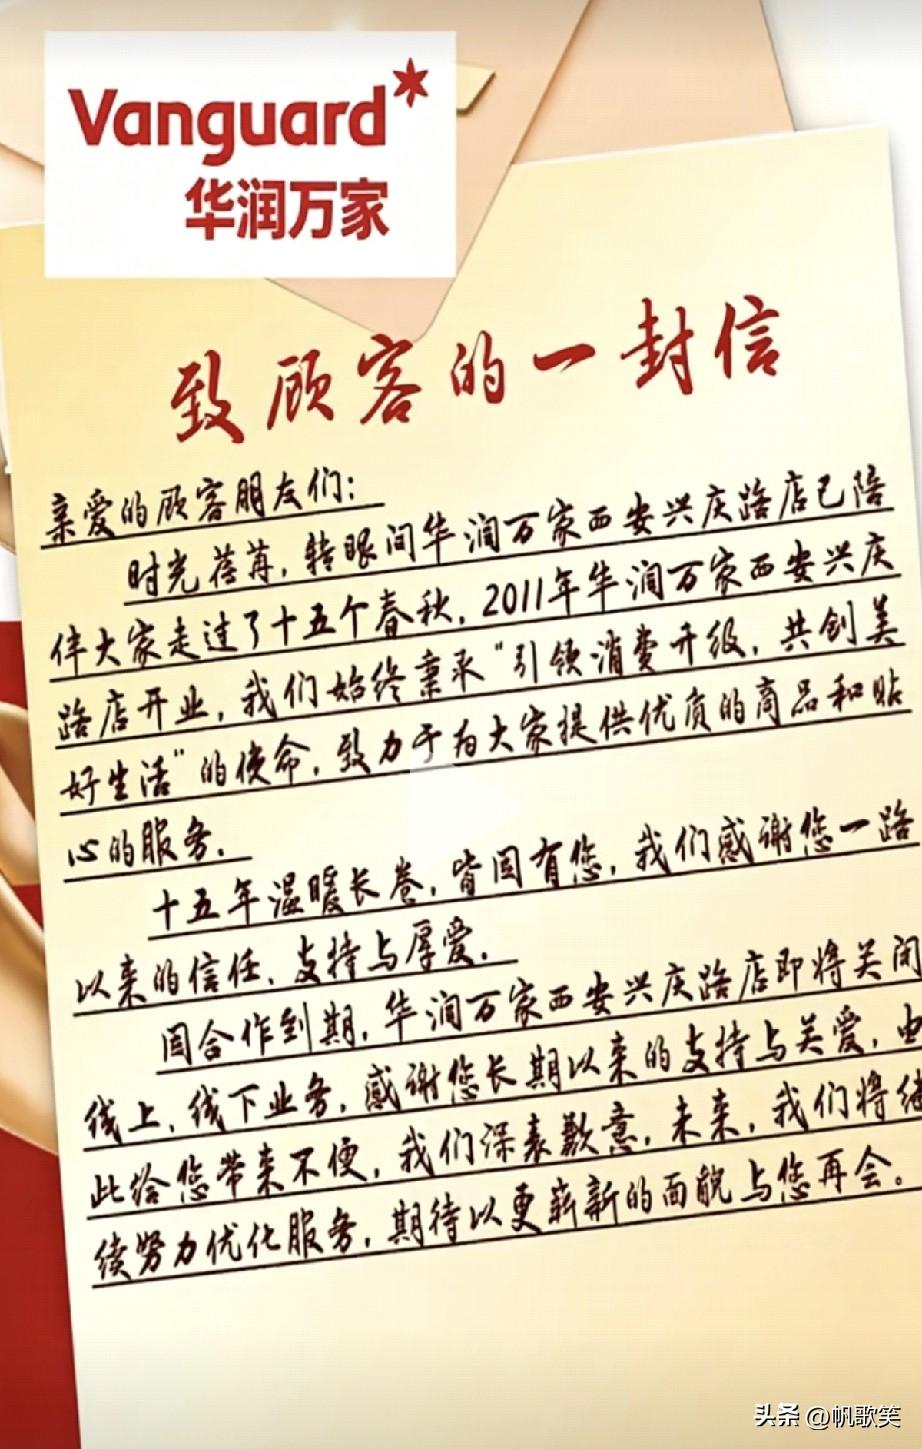 Vanguard*
华润万家
致顾客的一封信
亲爱的顾客朋友们：
时光荏苒，转眼间华润万家西安兴庆路店已陪
伴大家走过了十五个春秋，2011年华润万家西安兴庆
路店开业，我们始终秉承“引领消费升级，共创美
好生活”的使命，致力于为大家提供优质的商品和贴
心的服务.
十五年温暖长卷，皆因有您，我们感谢您一路
以来的信任、支持与厚爱.
因合作到期，华润万家西安兴庆路店即将关闭
线上、线下业务，感谢您长期以来的支持与关爱，由
此给您带来不便，我们深表歉意，未来，我们将继
续努力优化服务，期待以更崭新的面貌与您再会。
头条 @帆歌笑